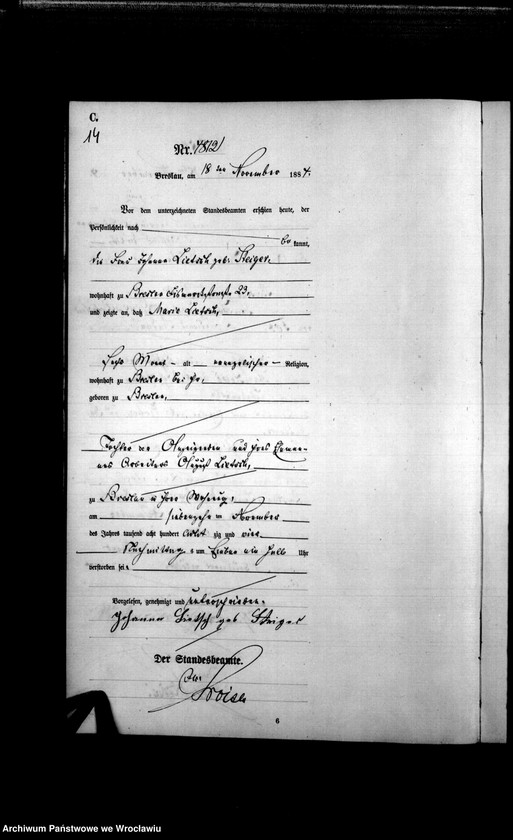 C.
14
Nr. 4812
Breslau, am 18 ten November 1884.
Vor dem unterzeichneten Standesbeamten erschien heute, der
Persönlichkeit nach
be kannt,
die Frau Johanna Lietsch geb. Steiger,
wohnhaft zu Breslau 23,
und zeigte an, daß Marie Lietsch,
sechs Monat alt evangelischer Religion,
wohnhaft zu Breslau bei ihr,
geboren zu Breslau,
Tochter der Anzeigenden und ihres Eheman-
nes Arbeiters August Lietsch,
zu Breslau in ihrer Wohnung,
am siebenzehn ten November
des Jahres tausend acht hundert achtzig und vier
Nachmittags um sieben ein halb Uhr
verstorben sei.
Vorgelesen, genehmigt und unterschrieben.
Johanna Lietsch geb Steiger
Der Standesbeamte.
6
Archiwum Państwowe we Wrocławiu